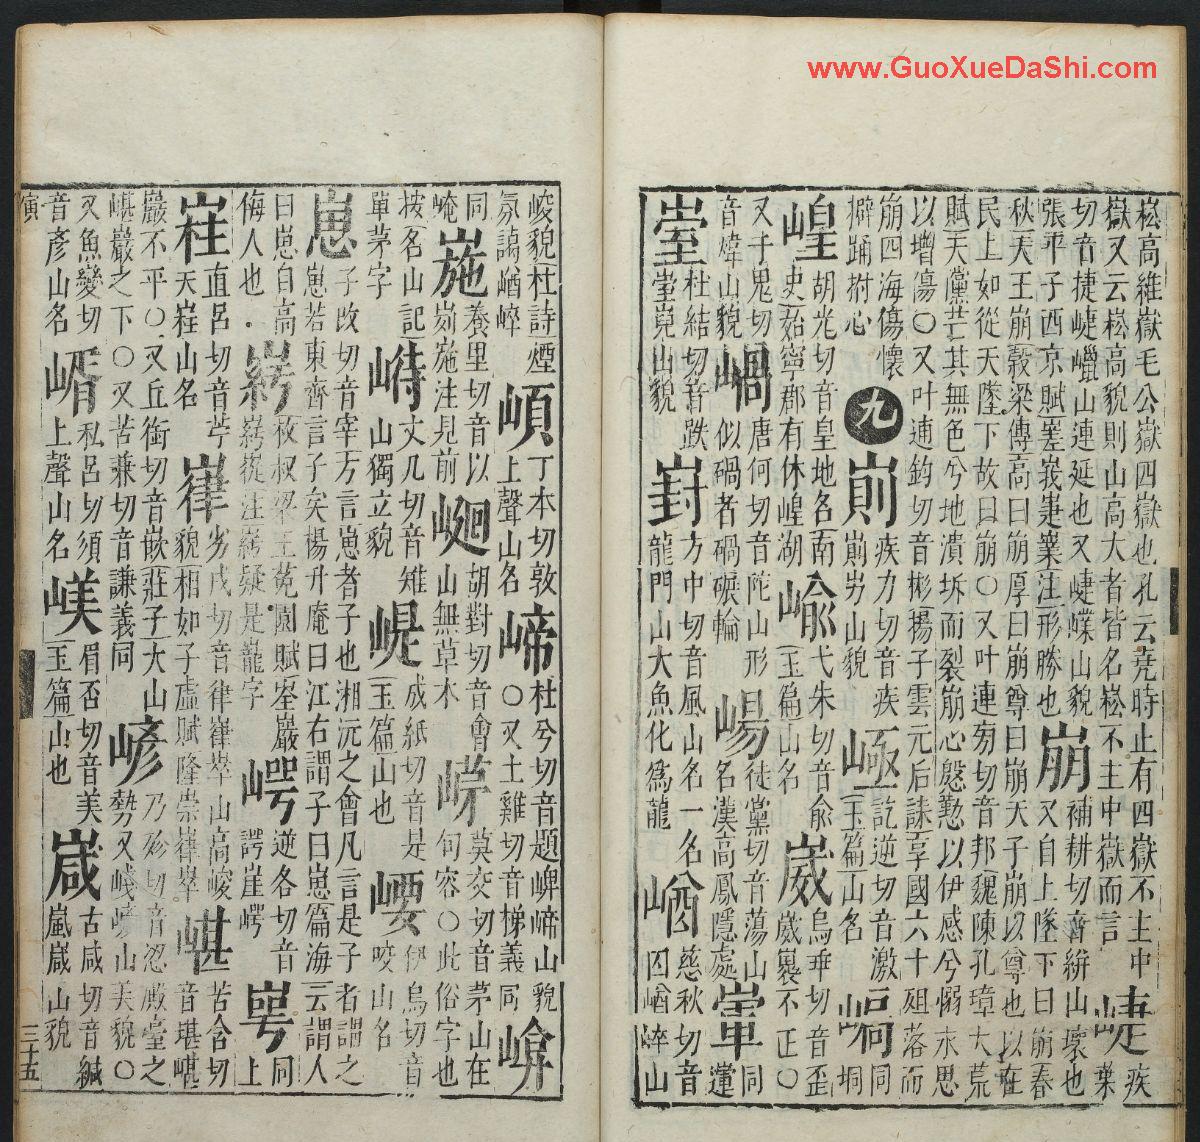 www.GuoXueDaShi.com
崧高維嶽毛公嶽四嶽也孔云堯時止有四嶽不主中
嶽又云崧高貌則山高大者皆名崧不主中嶽而言 崨 疾葉
切音捷崨巁山連延也又崨嶫山貌 崩 補耕切音絣山壞也
張平子西京賦嵳峩崨嶪注形勝也 又自上墜下曰崩春
秋天王崩穀梁傳高曰崩厚曰崩尊曰崩天子崩以尊也以在
民上如從天墜下故曰崩〇又叶連切音邦魏陳孔璋大荒
賦天黨其無色兮地潰坼而裂崩心慇懃以伊感兮惻永思
以增傷〇又叶逋鈞切音彬揚子雲元后誄享國六十殂落而
崩四海傷懷
擗踊拊心 九 崱 疾力切音疾崱屴山貌 㥛 訖逆切音激玉篇山名 峒 同峒
嵑 胡光切音皇地名南史始寧郡有休崲湖 崳 弋朱切音俞玉篇山名 崴 烏乖切音歪崴裏不正〇
又于鬼切音煒山貌 唐何切音陀山形似碢者碢碾輪 崵 徒黨切音蕩山名漢高鳳隱處 同
杜結切音跌 山貌 崶 方中切音風山名一名龍門山大魚化為龍 崷 慈秋切音囚崷崒山
峻貌杜詩煙氛藹崷崒 丁本切敦上聲山名 崹 杜兮切音題崥崹山貌〇又土雞切音梯義同
同 崺 養里切音以峛崺注見前 胡對切音會山無草木 莫交切音茅山在
崦 句容〇此俗字也
按名山記單茅字 峙 丈几切音雉山獨立貌 崼 成紙切音是玉篇山也 崾 伊鳥切音咬山名
崽 子改切音宰方言崽者子也湘沅之會凡言是子者謂之
崽若東齊言子矣楊升庵曰江右謂子曰崽篇海云謂人
曰崽自高侮人也 枚叔梁王菟園賦崟巖 崿 逆各切音諤崖崿 㟧 同上
從注 疑是巃字
直呂切音苧天 山名 嵂 劣戌切音律嵂崒山高峻貌相如子虛賦隆崇嵂崒 嵁 苦含切音堪嵁
巖不平〇又丘銜切音嵌莊子大山嵁巖之下〇又苦兼切音謙義同 嵃 乃殄切音 殿臺之勢又嶘嵃山美貌〇
又魚變切音彥山名 㟰 私呂切須上聲山名 媄 眉否切音美玉篇山也 嵅 古咸切音緘嵐嵅山貌
寅
三十五